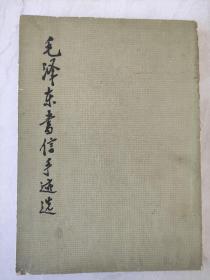 毛泽东书信手迹选